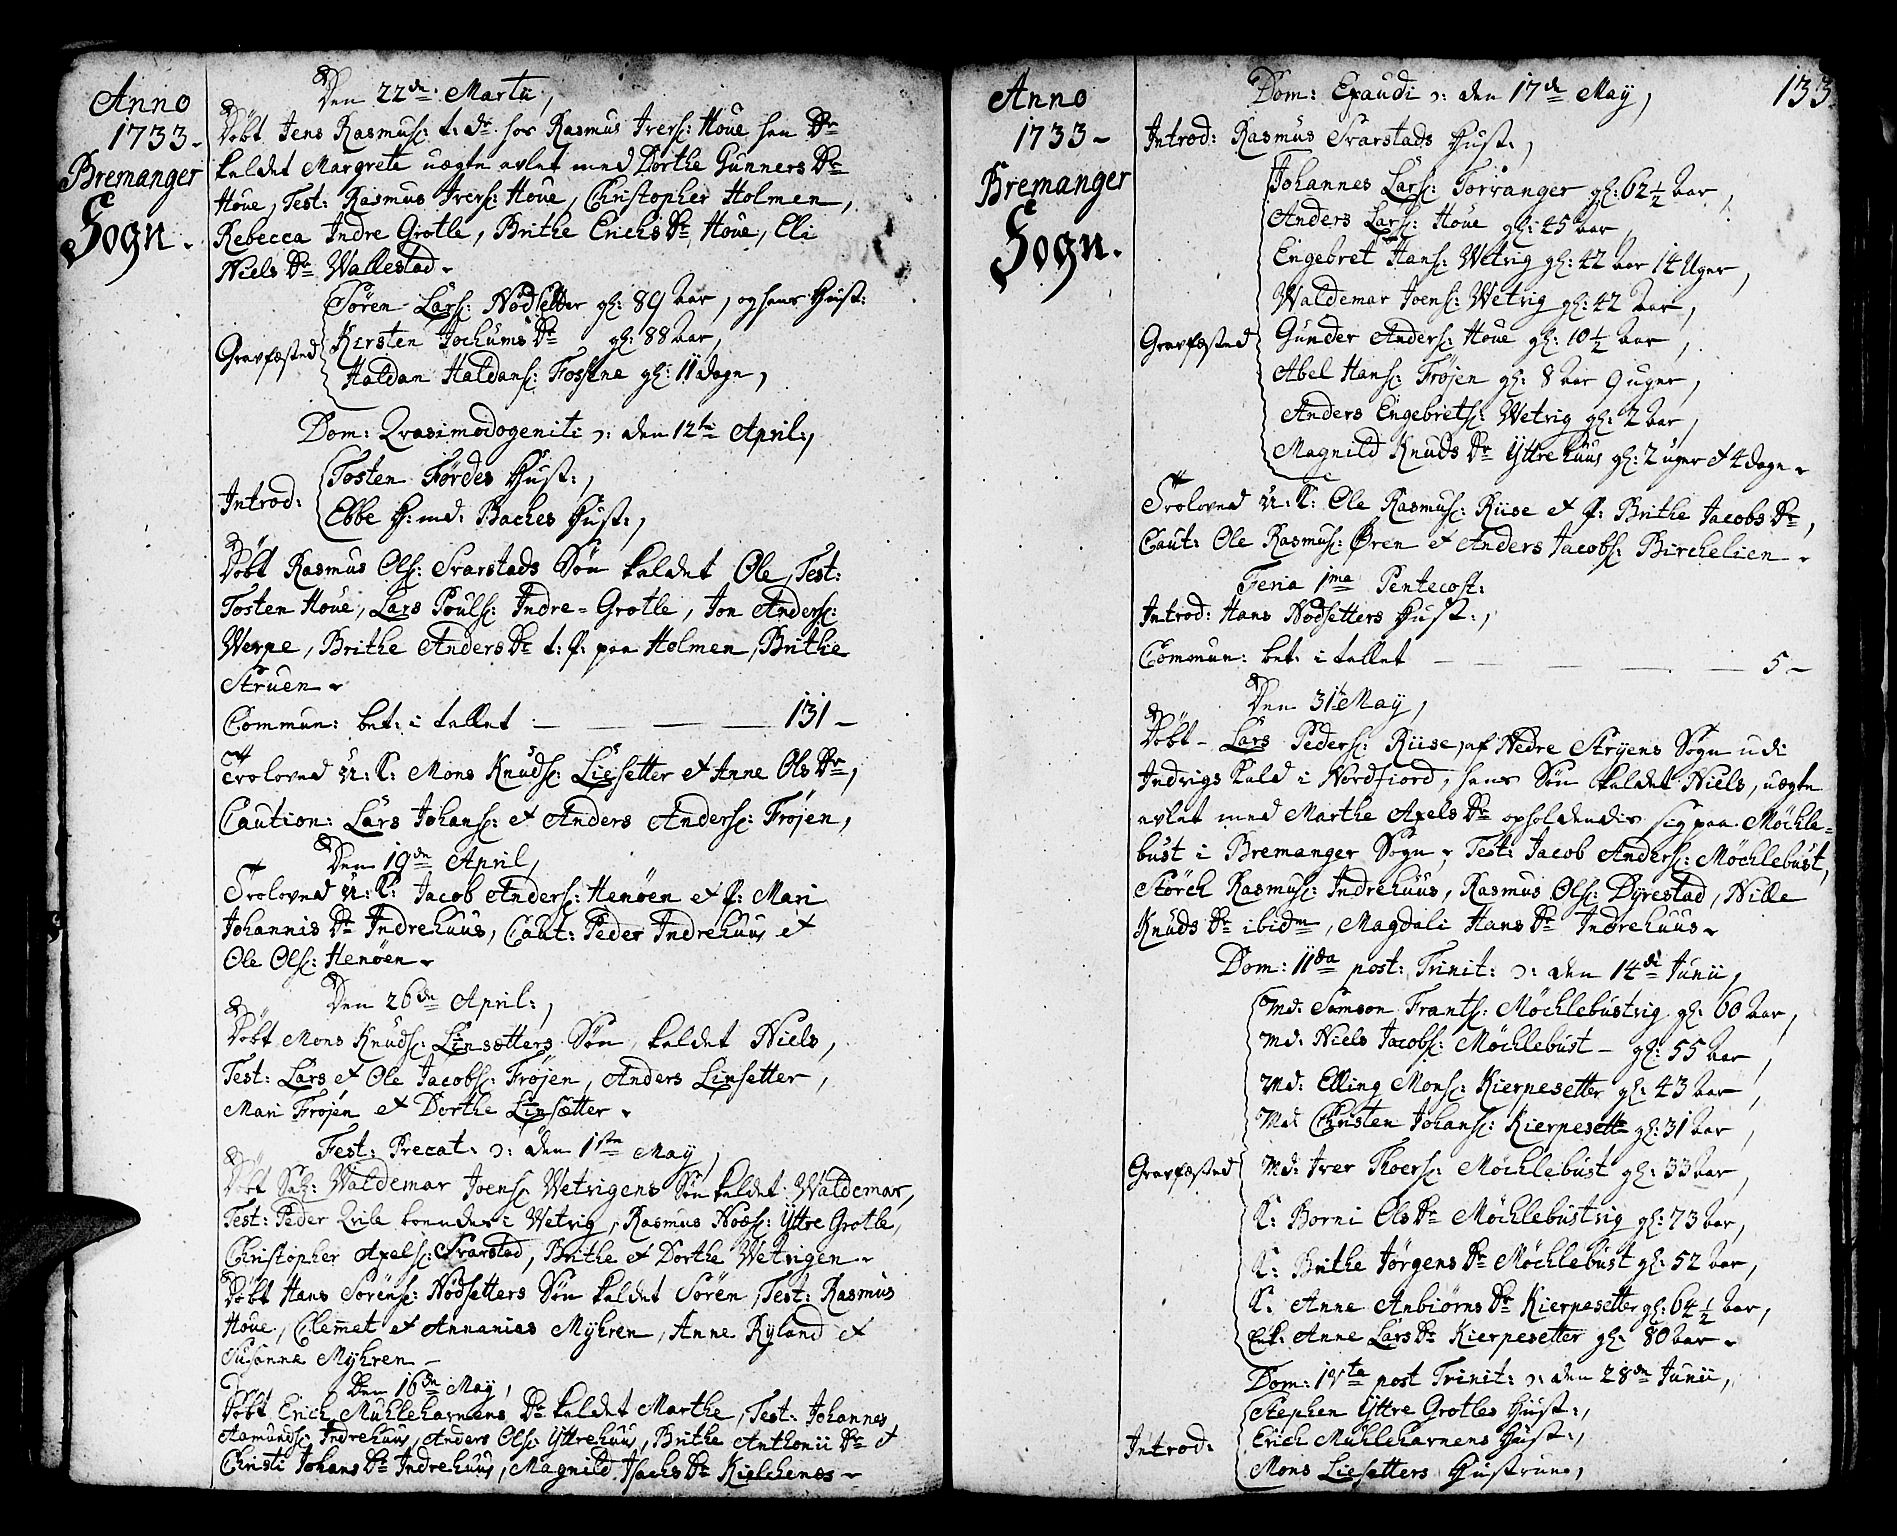 Anno
1733.
Bremanger
Sogn.
Den 22de Martii,
Döbt Jens Rasmus: t. dr. hos Rasmus Iverss: Houe hen Dr
kaldet Margrete uægte avlet med Dorthe Gunners Dr
Houe, Test: Rasmus Iverss: Houe, Christopher Holmen,
Rebecca Indre Grotle, Brithe Erichs Dr Houe, Eli
Niels Dr Wallestad.
Sören Larss: Nödsetter gl: 89 Aar, og hans Hust:
Gravfæsted Kirsten Jochums Dr gl: 88 Aar,
Haldan Haldanss: Fossene gl: 11 dage,
Dom: Qvasimodogeniti ɔ: den 12te April:,
Introd: Tosten Fördes Hust:,
Ebbe H: md: Baches Hust:,
Döbt Rasmus Olss: Svarstads Sön kaldet Ole, Test:
Tosten Houe, Lars Poulss: Indre-Grotle, Jon Anderss:
Werpe, Brithe Anders Dr t: P: paa Holmen, Brithe
Struen.
Commun: bet: i tallet — — — 131 —
Troloved U: K: Mons Knudss: Liesetter et Anne Ols Dr,
Caution: Lars Johanss: et Anders Anderss: Fröjen,
Den 19de April,
Troloved U: K: Jacob Anderss: Henöen et P: Mari
Johannis Dr Indrehuus, Caut: Peder Indrehuus et
Ole Olss: Henöen.
Den 26de April:,
Döbt Mons Knudss: Linsætters Sön kaldet Niels,
Test: Lars et Ole Jacobss: Fröjen, Anders Linsetter,
Mari Fröjen et Dorthe Linsætter.
Fest: Precat: ɔ: den 1ste May,
Döbt Sal: Waldemar Joenss: Wetvigens Sön kaldet Waldemar,
Test: Peder Qvile boendes i Wetvig, Rasmus Noess: Yttre Grotle,
Christopher Axelss: Svarstad, Brithe et Dorthe Wetvigen.
Döbt Hans Sörenss: Nödsetters Sön kaldet Sören, Test: Rasmus
Houe, Clemet et Annanies Myhren, Anne Ryland et
Susanne Myhren.
Den 16de May,
Döbt Erich Muhlehavnens Dr kaldet Marthe, Test: Johannes
Aamundss: Indrehuus, Anders Olss: Yttrehuus, Brithe Anthonii Dr et
Christi Johans Dr Indrehuus, Magnild Isachs Dr Kielchenes.
Anno
1733-
Bremanger
Sogn.
133
Dom: Exaudi ɔ: den 17de May,
Introd: Rasmus Svarstads Hust:,
Johannes Larss: Torvanger gl: 62 1/2 Aar,
Anders Larss: Houe gl: 45 Aar,
Engebret Hanss: Wetvig gl: 42 Aar 14 Uger,
Waldemar Joenss: Wetvig gl: 42 Aar,
Gravfæsted Gunder Anderss: Houe gl: 10 1/2 Aar,
Abel Hanss: Fröjen gl: 8 Aar 9 uger,
Anders Engebretss: Wetvig gl: 2 Aar,
Magnild Knuds Dr Yttrehuus gl: 2 uger et 4 dage.
Troloved U: K: Ole Rasmuss: Riise et P: Brithe Jacobs Dr,
Caut: Ole Rasmuss: Øren et Anders Jacobss: Birchelien.
Feria 1ma Pentecost:
Introd: Hans Nödsetters Hust:,
Commun: bet: i tallet — — — 5 —
Den 31te May,
Döbt Lars Pederss: Riise, af Nedre Stryens Sogn udi
Indvigs kald i Nordfiord, hans Sön kaldet Niels, uægte
avlet med Marthe Axels Dr opholdendis sig paa Möchle-
bust i Bremanger Sogn. Test: Jacob Anderss: Möchlebust,
Störch Rasmuss: Indrehuus, Rasmus Olss: Dyrestad, Nille
Knuds Dr ibidm, Magdali Hans Dr Indrehuus.
Dom: IIda post: Trinit: ɔ: den 14de Junii,
Md: Samson Frantss: Möchlebustvig gl: 60 Aar,
Md: Niels Jacobss: Möchlebust — gl: 55 Aar,
Md: Elling Monss: Kierpesetter gl: 43 Aar,
Md: Christen Johanss: Kierpesette gl: 31 Aar,
Gravfæsted Md: Iver Thoerss: Möchlebust gl: 33 Aar,
K: Borni Ols Dr Möchlebustvig gl: 73 Aar,
K: Brithe Jörgens Dr Möchlebust gl: 52 Aar,
K: Anne Anbiörns Dr Kierpesetter gl: 64 1/2 Aar,
Enk: Anne Lars Dr Kierpesetter gl: 80 Aar.
Dom: IVta post Trinit: ɔ: den 28de Junii,
Stephen Yttre Grotles Hust:,
Introd: Erich Muhlehavnens Hust:,
Mons Liesetters Hustrue,